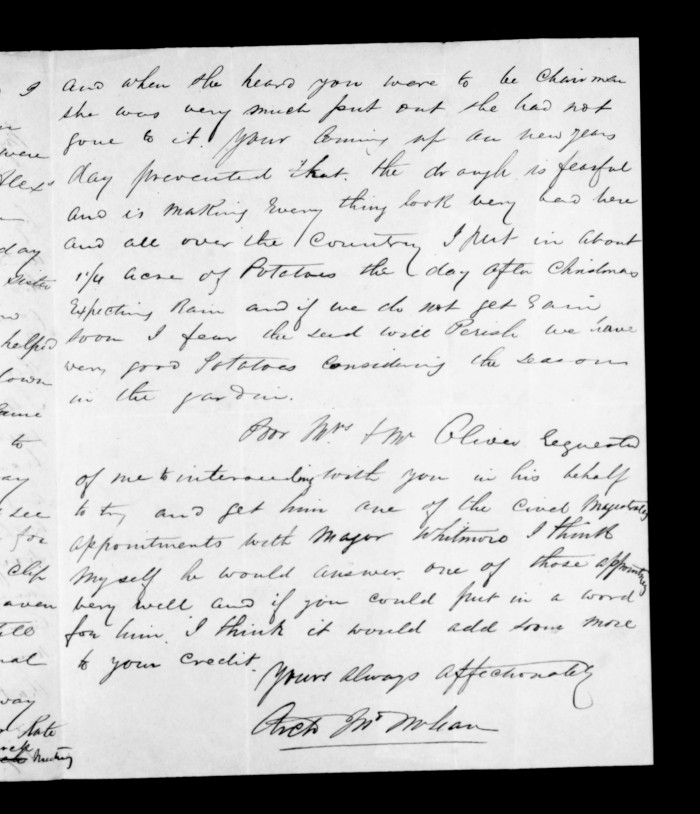 and when she heard you were to be Chairman
she was very much put out she had not
gone to it. Your Coming up on new years
day prevented that. the drough is fearful
and is making Every thing look very bad here
and all over the Country I put in about
1¼ acre of Potatoes the day after Christmas
Expecting Rain and if we do not get Rain
soon I fear the seed will Perish we have
very good Potatoes considering the season
in the garden.
Poor Mrs & Mr Oliver Requested
of me to interceeding with you in his behalf
to try and get him one of the civel Magistrates
appointments with Major Whitmore I think
myself he would answer one of those
very well and if you could put in a word
for him. I think it would add some more
to your credit.
Yours always affectionately
Arch
I
were
Alexr
day
Sister
helped
down
to
see
for
clip
Kate